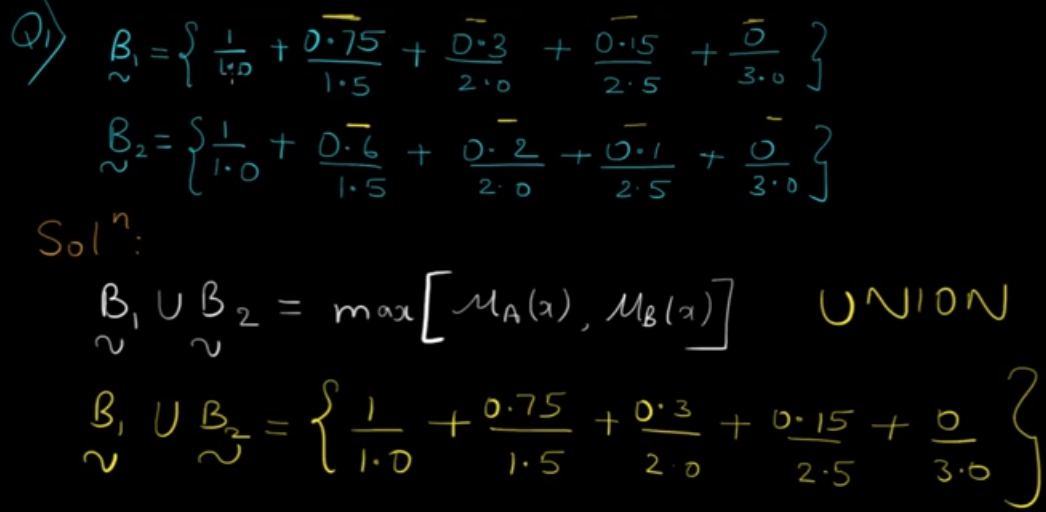 Q1) B̰₁ = { 1/1.0 + 0.75/1.5 + 0.3/2.0 + 0.15/2.5 + 0/3.0 }
B̰₂ = { 1/1.0 + 0.6/1.5 + 0.2/2.0 + 0.1/2.5 + 0/3.0 }
Solⁿ:
B̰₁ ∪ B̰₂ = max[ μA(x), μB(x) ] UNION
B̰₁ ∪ B̰₂ = { 1/1.0 + 0.75/1.5 + 0.3/2.0 + 0.15/2.5 + 0/3.0 }